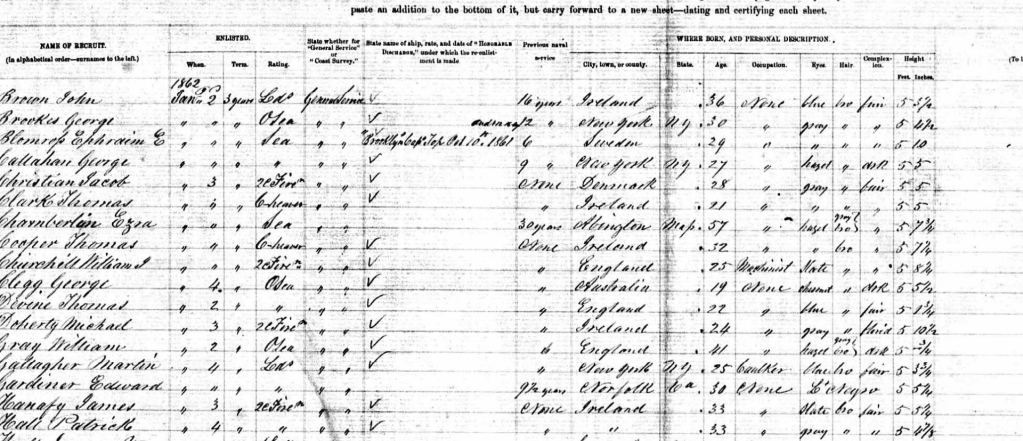 paste an addition to the bottom of it, but carry forward to a new sheet—dating and certifying each sheet.
NAME OF RECRUIT. (In alphabetical order—surnames to the left.) ENLISTED. When. Term. Rating. State whether for "General Service" or "Coast Survey." State name of ship, rate, and date of "HONORABLE DISCHARGE," under which the re-enlistment is made Previous naval service WHERE BORN, AND PERSONAL DESCRIPTION. City, town, or county. State. Age. Occupation. Eyes Hair Complexion. Height Feet. Inches. (To b
1862
Brown John Jany 2 3 years Lds General Service ✓ 16 years Ireland 36 None blue bro fair 5 3½
Brookes George " " " O Sea " " 2 " New York N Y 30 " gray " " 5 4½
Ephraim E " " " Sea " " Brooklyn Oct 10th 1861 6 Sweden 29 " " " " 5 10
Callahan George " " " " " " ✓ 9 " New York N Y 27 " hazel " drk 5 5
Christian Jacob " 3 " 2C Firen " " ✓ None Denmark 28 " gray " fair 5 5
Clark Thomas " " " C heaver " " ✓ " Ireland 21 " " " " 5 5
Chamberlin Ezra " " " Sea " " 30 years Abington Mass 57 " hazel gray & bro " 5 7¾
Cooper Thomas " " " C heaver " " ✓ None Ireland 32 " " bro " 5 7¼
Churchill William J " " " 2C Firen " " ✓ " England 25 Machinist slate " " 5 8¼
Clegg George " 4 " O Sea " " ✓ " Australia 19 None chesnut " drk 5 5½
Devine Thomas " 2 " " " " ✓ " England 22 " blue " fair 5
Doherty Michael " 3 " 2C Firen " " ✓ " Ireland 24 " gray " florid 5 10½
Gray William " 2 " O Sea " " ✓ England 41 " hazel gray & bro drk 5
Gallagher Martin " 4 " Lds " " ✓ " New York N Y 25 Caulker blue bro fair 5 3¾
Gardiner Edward " " " " " " 9½ years Norfolk Va 30 None Negro 5 5¼
Hanafy James " 3 " 2C Firen " " ✓ None Ireland 33 " slate bro fair 5 5¼
Hall Patrick " 4 " " " " ✓ " " 33 " gray " " 5 4⅞